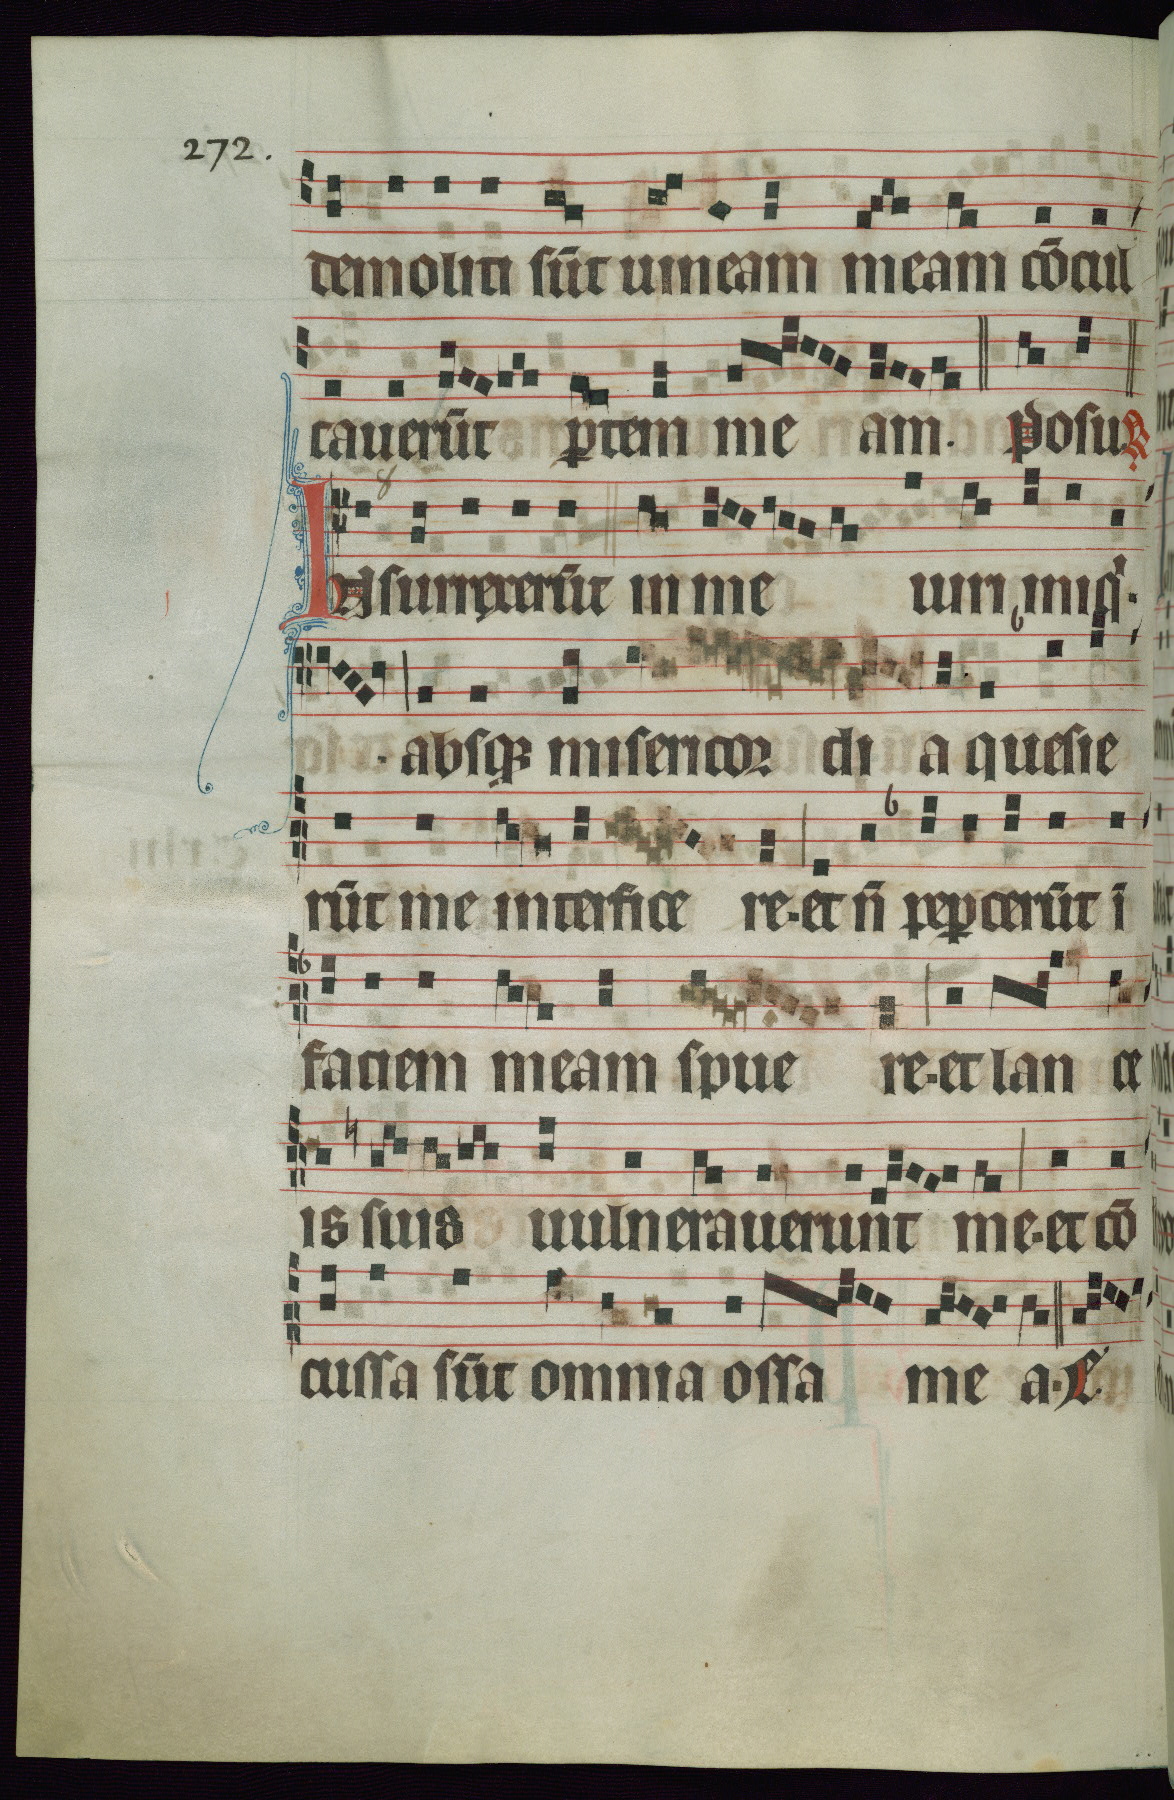 272.
demoliti sūt uineam meam cōcul
cauerūt ꝑtem me am. Posu ℟
8
Insurrexerūt in me uiri iniq̇.
. absqꝫ misericor di a quesie
rūt me interfice re. et n̄ peꝑcerūt ī
faciem meam spue re. et lan ce
is suis uulnerauerunt me. et cō
cussa sūt omnia ossa me a.